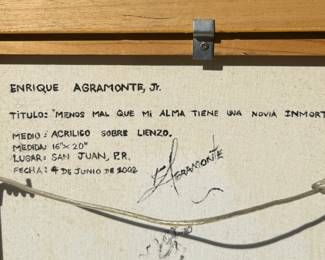 ENRIQUE AGRAMONTE, Jr.
TÍTULO: "MENOS MAL QUE MI ALMA TIENE UNA NOVIA INMORT
MEDIO: ACRILICO SOBRE LIENZO.
MEDIDA: 16" X 20"
LUGAR: SAN JUAN, P.R.
FECHA: 4 DE JUNIO DE 2002
E. AGRAMONTE